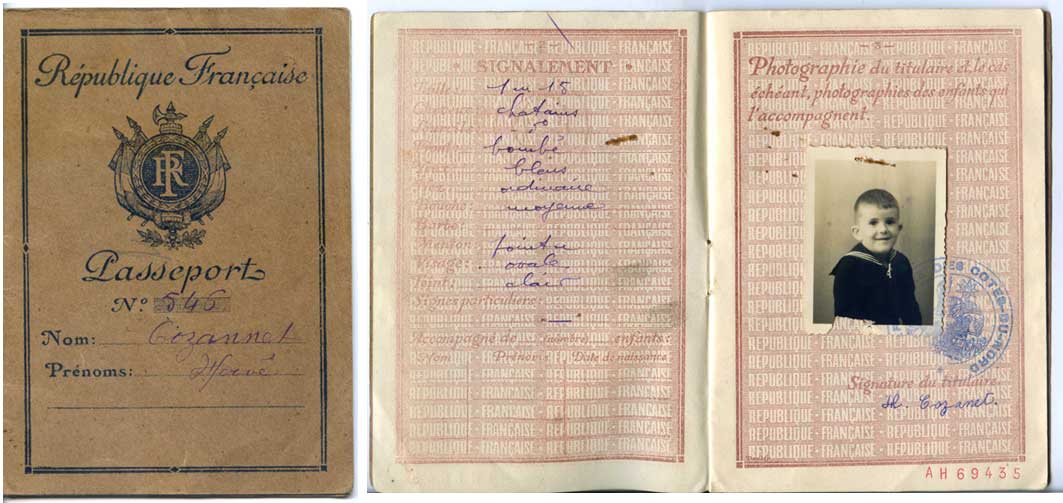 République Française
RF
Passeport
N.º 546
Nom: Cozannet
Prénoms: Hervé
RÉPUBLIQUE FRANÇAISE - RÉPUBLIQUE - FRANÇAISE
SIGNALEMENT
Taille: 1 m 18
châtains
bombé
bleus
ordinaire
moyenne
Barbe:
Menton: pointu
ovale
Teint: clair
Signes particuliers:
Accompagné de (nombre) enfants:
Nom Prénoms Date de naissance
— 3 —
Photographie du titulaire et, le cas
échéant, photographies des enfants qui
l'accompagnent.
DES COTES-DU-NORD
Signature du titulaire.
H. Cozanet.
AH 69435